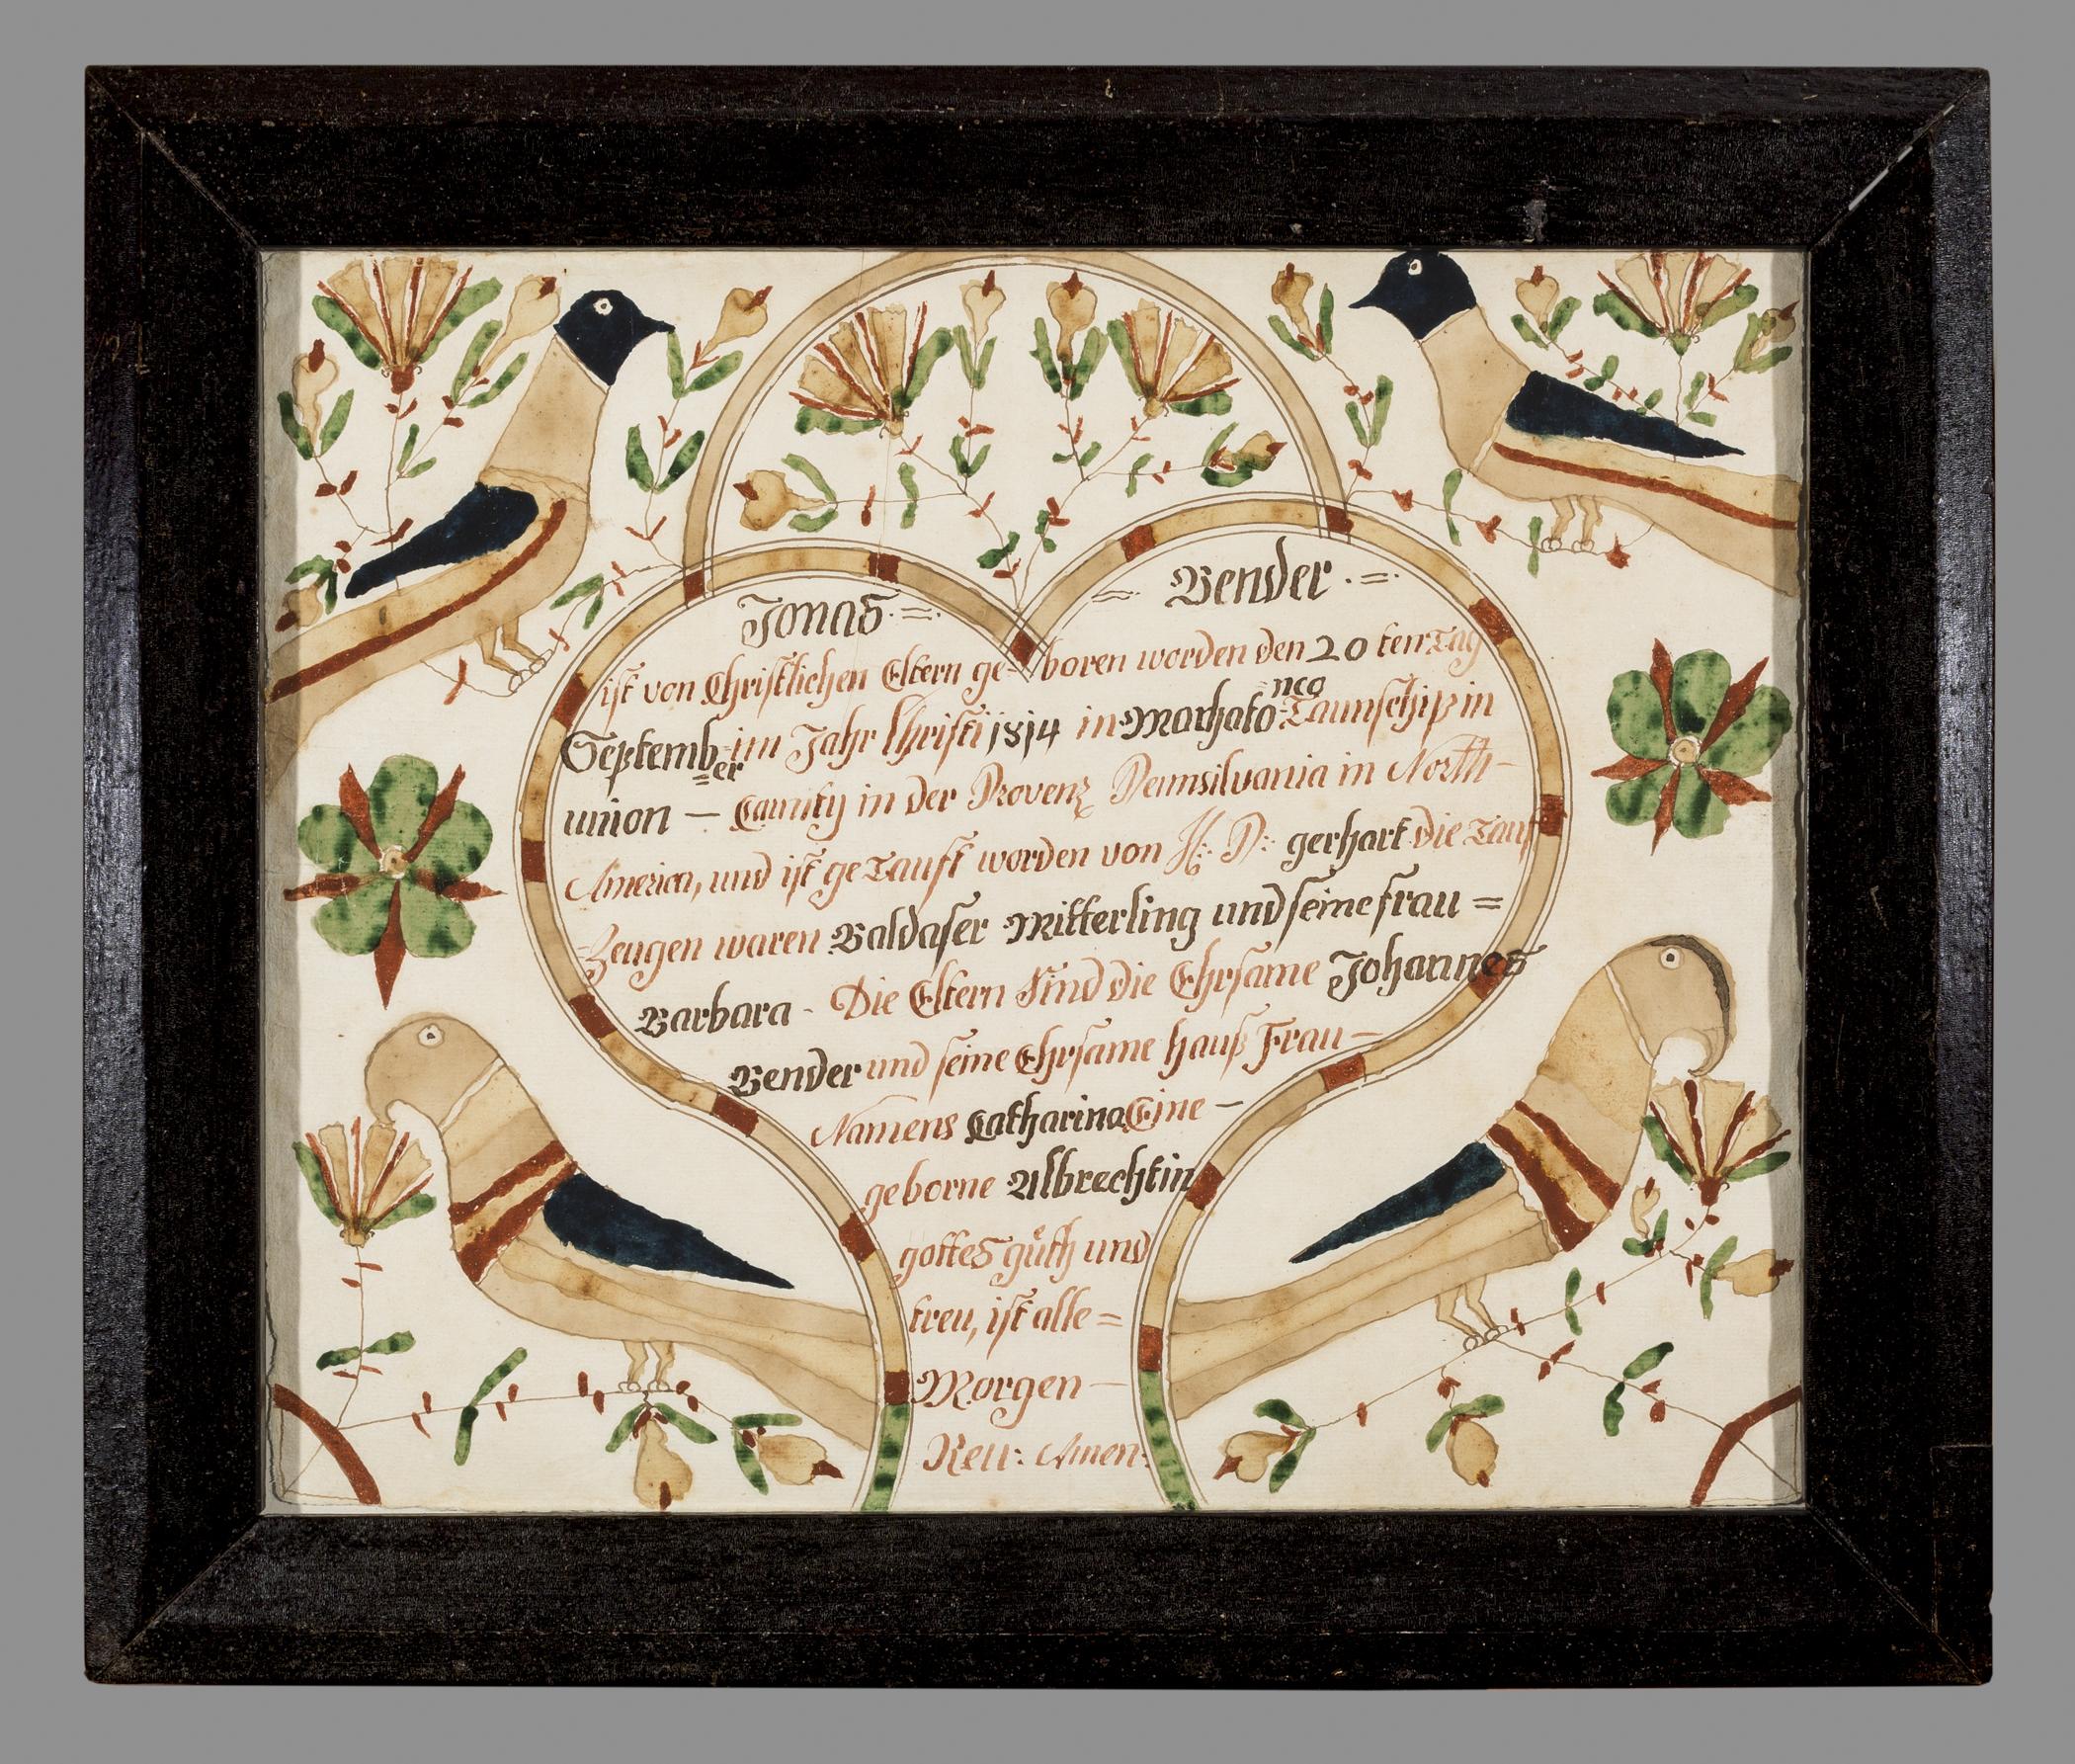 Jonas · = · = Bender · = ·
ist von Christlichen Eltern ge- boren worden den 20 ten Tag
September im Jahr Christi 1814 in Machatonco Taunschip in
union — Caunty in der Provenz Pennsilvania in North-
America, und ist getauft worden von H: D: gerhart die Tauf
Zeugen waren Baldaser Mitterling und seine frau =
Barbara - Die Eltern Sind die Ehrsame Johannes
Bender und seine Ehrsame hauß Frau —
Namens Catharina Eine —
geborne Albrechtin
gottes güth und
treu, ist alle =
Morgen —
Neu: Amen: